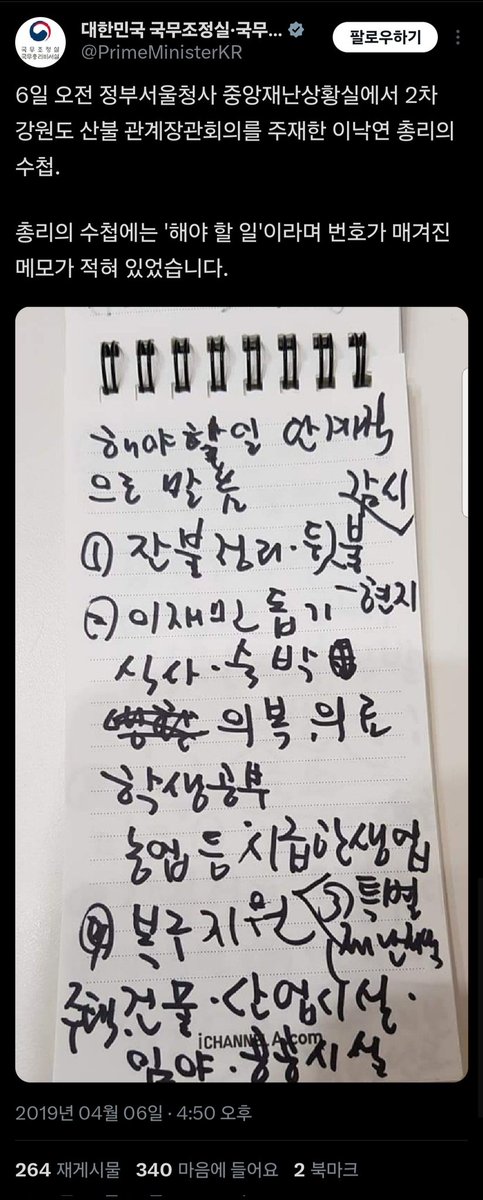 대한민국 국무조정실·국무...
@PrimeMinisterKR
팔로우하기
국무조정실
국무총리비서실
6일 오전 정부서울청사 중앙재난상황실에서 2차
강원도 산불 관계장관회의를 주재한 이낙연 총리의
수첩.
총리의 수첩에는 '해야 할 일'이라며 번호가 매겨진
메모가 적혀 있었습니다.
해야할일 단계적
으로 말씀
감시
① 잔불정리·뒷불
② 이재민 돕기 - 현지
식사·숙박
의복, 의료
학생공부
농업 등 시급한 생업
복구지원 ③ 특별
주택, 건물·산업시설·
iCHANNELA.com
임야·공공시설
2019년 04월 06일 · 4:50 오후
264 재게시물 340 마음에 들어요 2 북마크